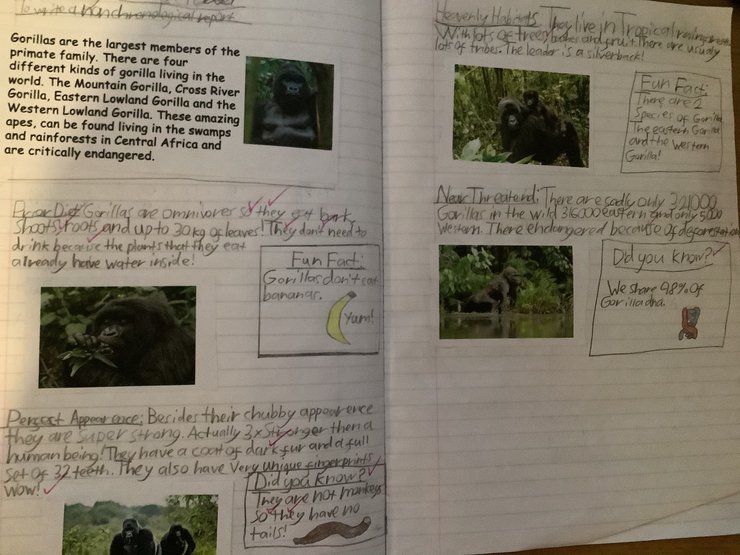 To write a non chronological report
Gorillas are the largest members of the
primate family. There are four
different kinds of gorilla living in the
world. The Mountain Gorilla, Cross River
Gorilla, Eastern Lowland Gorilla and the
Western Lowland Gorilla. These amazing
apes, can be found living in the swamps
and rainforests in Central Africa and
are critically endangered.
Diet Gorillas are omnivores so they eat bark,
Shoots, roots and up to 30 kg of leaves! They don't need to
drink because the plants that they eat
already have water inside!
Fun Fact:
Gorillas don't eat
bananas.
Yum!
Appearence: Besides their chubby appearence
they are super strong. Actually 3x Stronger then a
human being! They have a coat of dark fur and a full
set of 32 teeth. They also have very unique fingerprints
Wow!
Did you know?
They are not monkeys
so they have no
tails!
Heavenly Habitats They live in Tropical
With lots of trees, and fruit. There are usualy
lots of tribes. The leader is a silverback!
Fun Fact:
There are 2
Species of Gorilla
The eastern Gorilla
and the western
Gorilla!
Threatend: There are sadly only 321000
Gorillas in the wild 316000 eastern and only 5000
Western. There endangered because of deforestation
Did you know?
We share 98% of
Gorilla dna.